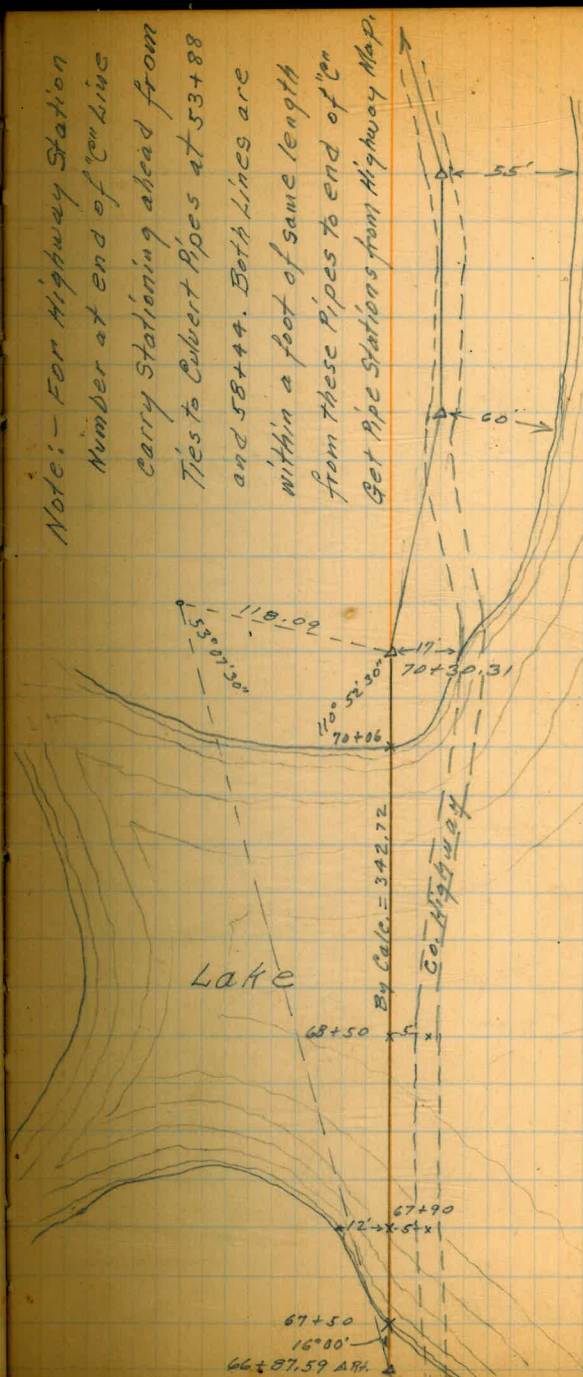 Note:- For Highway Station
Number at end of "C" Line
carry Stationing ahead from
Ties to Culvert Pipes at 53+88
and 58+44. Both Lines are
within a foot of same length
from these Pipes to end of "C"
Get Pipe Stations from Highway Map.
55'
60'
118.09
53° 07' 30"
17'
110° 52' 30"
70+30.31
70+06
By Calc. = 342.72
Co. Highway
Lake
68+50
5'
67+90
12'
5'
67+50
16°00'
66+87.59